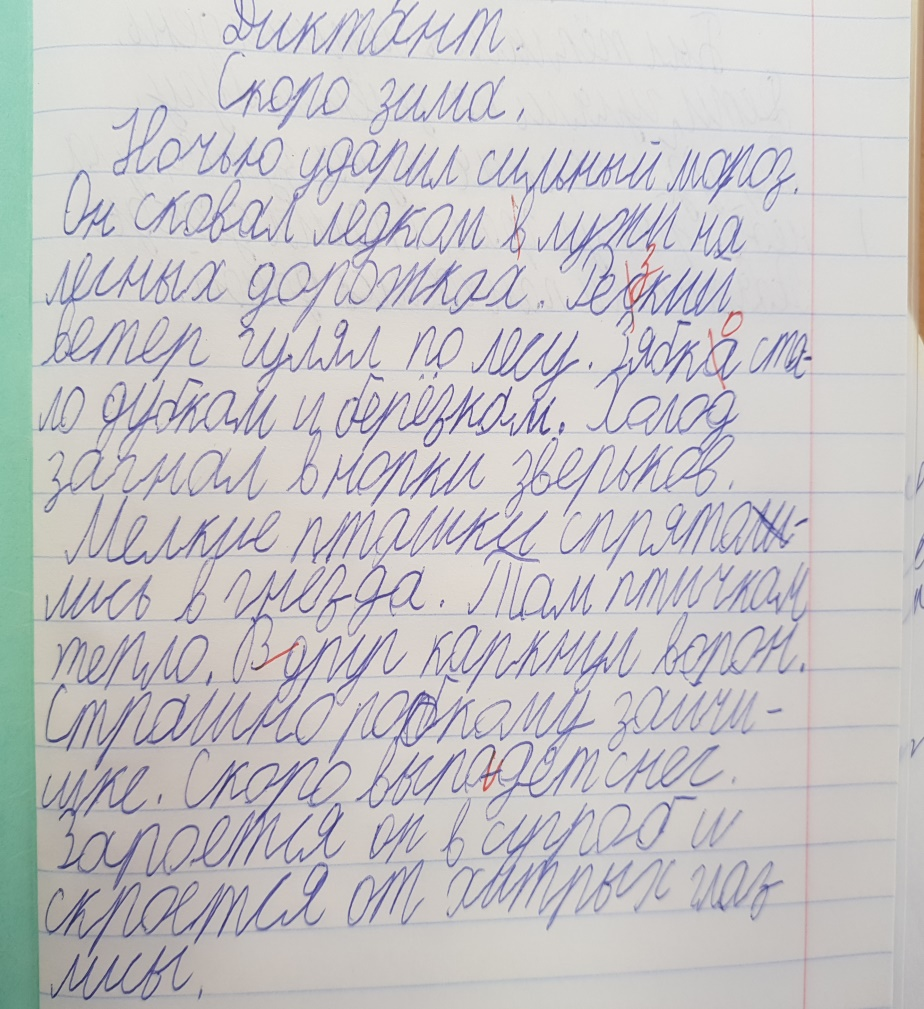 Диктант.
Скоро зима.
Ночью ударил сильный мороз.
Он сковал ледком в лужи на
лесных дорожках. Резкий
ветер гулял по лесу. Зябко ста-
ло дубкам и берёзкам. Холод
загнал в норки зверьков.
Мелкие пташки спрята-
лись в гнёзда. Там птичкам
тепло. Вдруг каркнул ворон.
Страшно робкому зайчи-
шке. Скоро выпадет снег.
Зароется он в сугроб и
скроется от хитрых глаз
лисы.